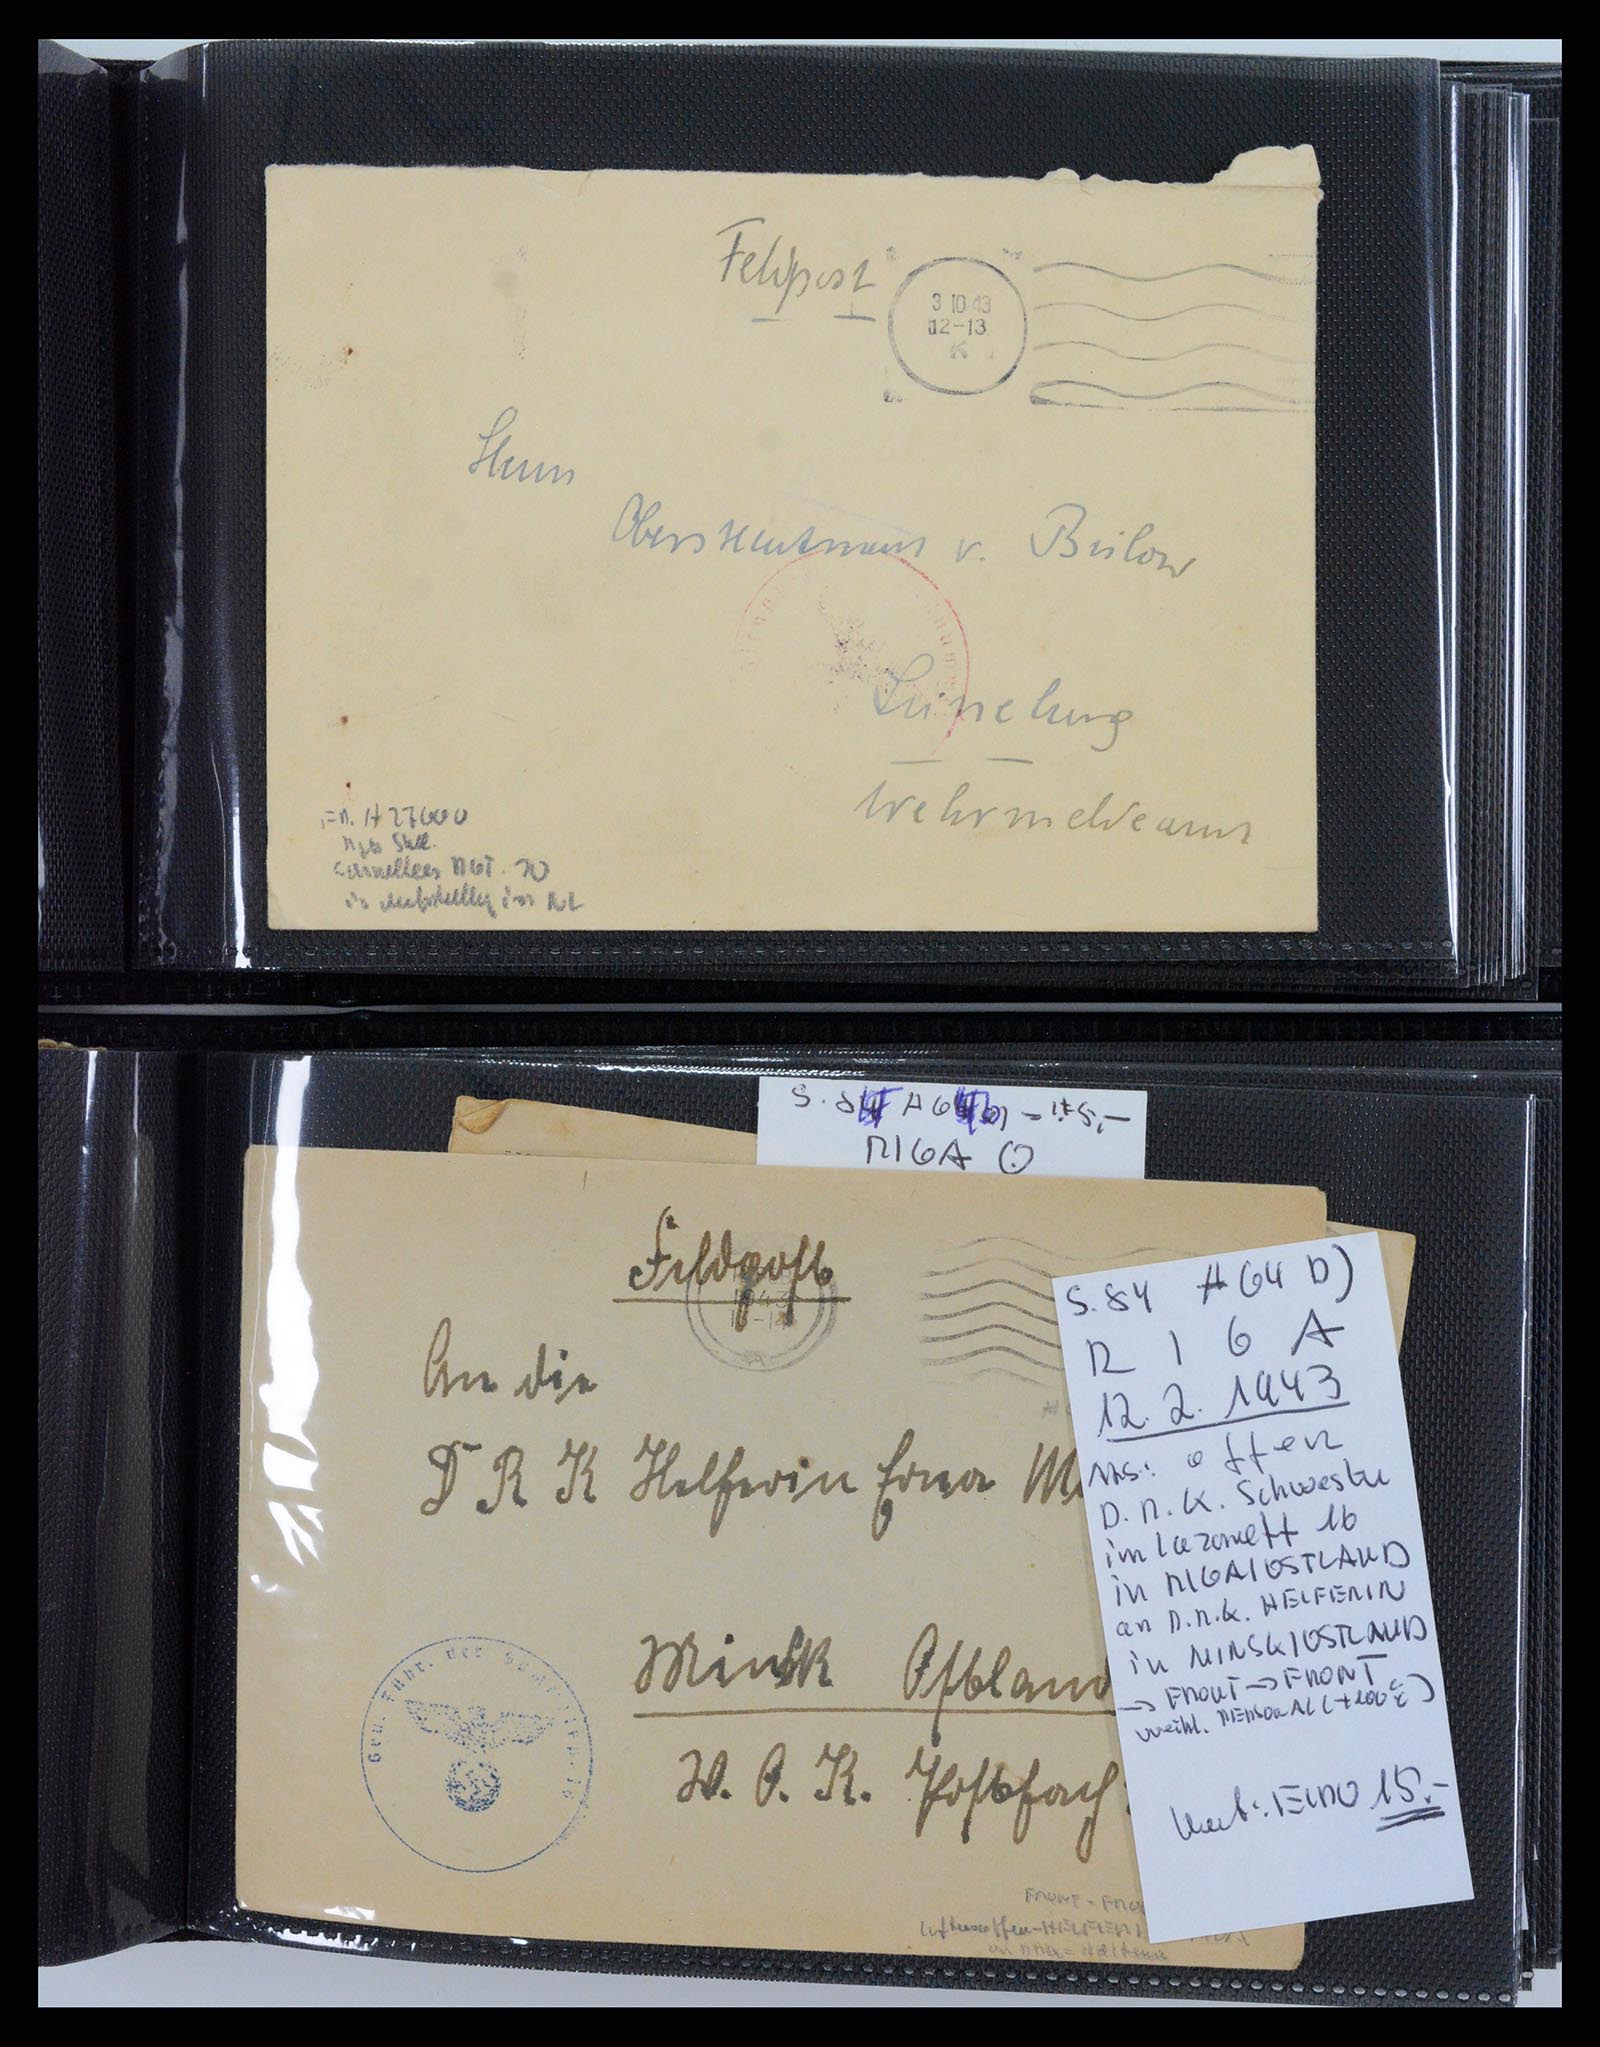 Feldpost
3 10 43
12-13
K
Herrn
Oberstleutnant v. Bülow
Lüneburg
Wehrmeldeamt
F.N. H 27600
RGT. 70
S. 84
RIGA
Feldpost
1943
An die
D R K Helferin Erna
Minsk Ostland
W. O. K. Postfach
S. 84 #(64 D)
R I G A
12. 2. 1943
Abs: offen
D.R.K. Schwester
im Lazarett 16
in RIGA/OSTLAND
an D.R.K. HELFERIN
in MINSK/OSTLAND
→ FRONT → FRONT
weibl. PERSONAL
Wert: EURO 15.-
FRONT - FRO
Luftwaffen-HELFERI
an DRK- Helferin